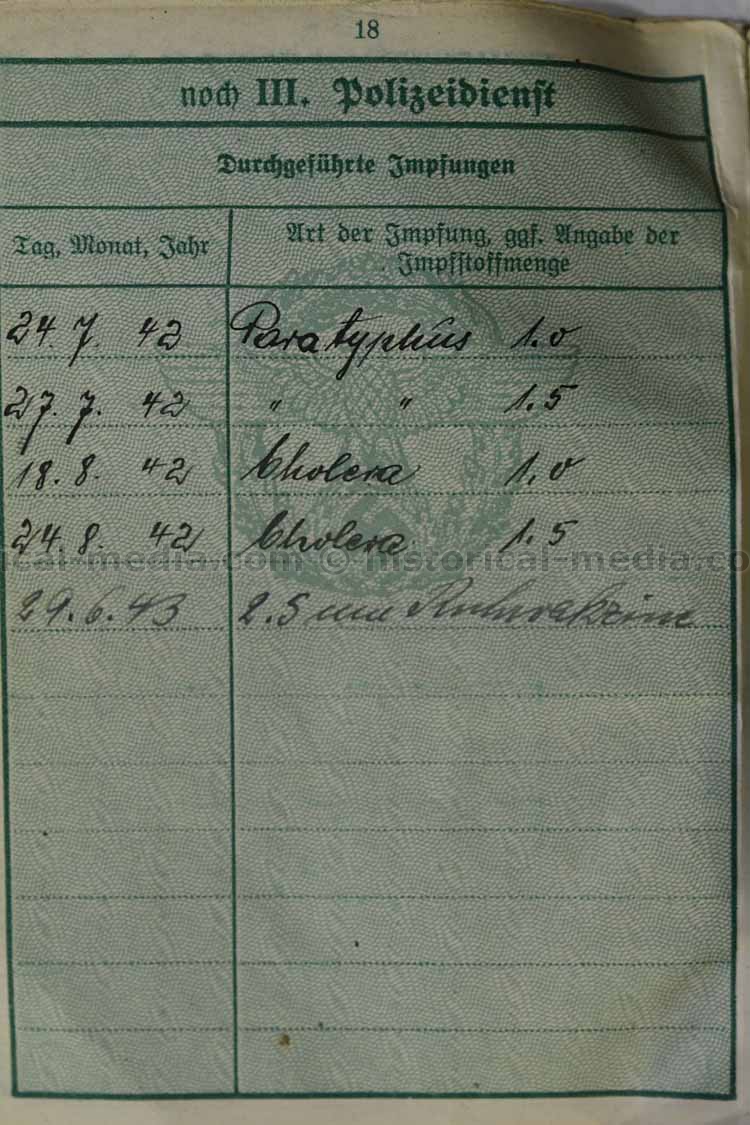 18
noch III. Polizeidienst
Durchgeführte Impfungen
Tag, Monat, Jahr
Art der Impfung, ggf. Angabe der
Impfstoffmenge
24. 7. 42 Paratyphus 1.0
27. 7. 42 " " 1.5
18. 8. 42 Cholera 1.0
24. 8. 42 Cholera 1.5
historical-media.com © historical-media.com
29. 6. 43 2.5 Ruhrvakzine